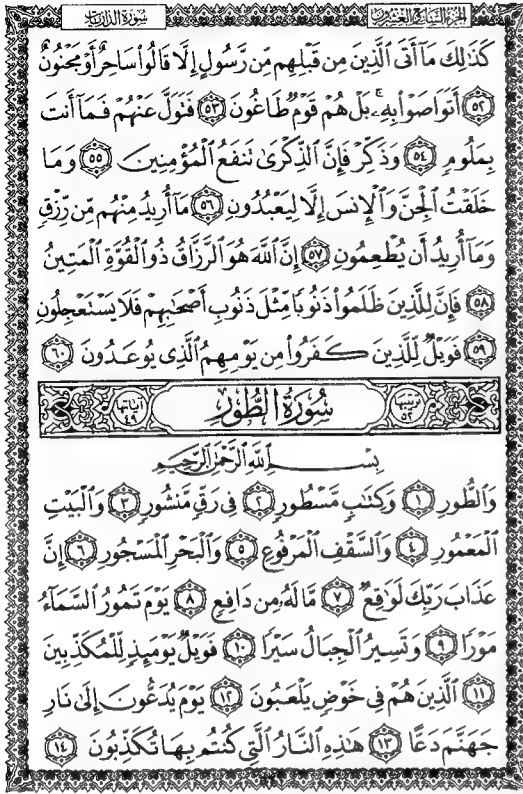 الجزء السابع والعشرون
سورة الذاريات
كَذَٰلِكَ مَآ أَتَى ٱلَّذِينَ مِن قَبْلِهِم مِّن رَّسُولٍ إِلَّا قَالُوا۟ سَاحِرٌ أَوْ مَجْنُونٌ
٥٢ أَتَوَاصَوْا۟ بِهِۦ ۚ بَلْ هُمْ قَوْمٌ طَاغُونَ ٥٣ فَتَوَلَّ عَنْهُمْ فَمَآ أَنتَ
بِمَلُومٍ ٥٤ وَذَكِّرْ فَإِنَّ ٱلذِّكْرَىٰ تَنفَعُ ٱلْمُؤْمِنِينَ ٥٥ وَمَا
خَلَقْتُ ٱلْجِنَّ وَٱلْإِنسَ إِلَّا لِيَعْبُدُونِ ٥٦ مَآ أُرِيدُ مِنْهُم مِّن رِّزْقٍ
وَمَآ أُرِيدُ أَن يُطْعِمُونِ ٥٧ إِنَّ ٱللَّهَ هُوَ ٱلرَّزَّاقُ ذُو ٱلْقُوَّةِ ٱلْمَتِينُ
٥٨ فَإِنَّ لِلَّذِينَ ظَلَمُوا۟ ذَنُوبًا مِّثْلَ ذَنُوبِ أَصْحَـٰبِهِمْ فَلَا يَسْتَعْجِلُونِ
٥٩ فَوَيْلٌ لِّلَّذِينَ كَفَرُوا۟ مِن يَوْمِهِمُ ٱلَّذِى يُوعَدُونَ ٦٠
ترتيبها ٥٢
سُورَةُ الطُّورِ
آياتها ٤٩
بِسْمِ ٱللَّهِ ٱلرَّحْمَـٰنِ ٱلرَّحِيمِ
وَٱلطُّورِ ١ وَكِتَـٰبٍ مَّسْطُورٍ ٢ فِى رَقٍّ مَّنشُورٍ ٣ وَٱلْبَيْتِ
ٱلْمَعْمُورِ ٤ وَٱلسَّقْفِ ٱلْمَرْفُوعِ ٥ وَٱلْبَحْرِ ٱلْمَسْجُورِ ٦ إِنَّ
عَذَابَ رَبِّكَ لَوَٰقِعٌ ٧ مَّا لَهُۥ مِن دَافِعٍ ٨ يَوْمَ تَمُورُ ٱلسَّمَآءُ
مَوْرًا ٩ وَتَسِيرُ ٱلْجِبَالُ سَيْرًا ١٠ فَوَيْلٌ يَوْمَئِذٍ لِّلْمُكَذِّبِينَ
١١ ٱلَّذِينَ هُمْ فِى خَوْضٍ يَلْعَبُونَ ١٢ يَوْمَ يُدَعُّونَ إِلَىٰ نَارِ
جَهَنَّمَ دَعًّا ١٣ هَـٰذِهِ ٱلنَّارُ ٱلَّتِى كُنتُم بِهَا تُكَذِّبُونَ ١٤